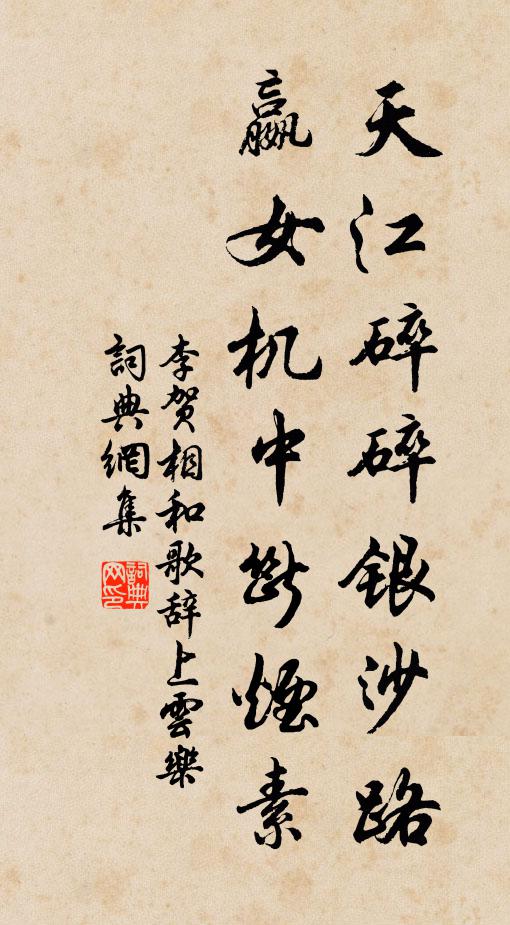 天江碎碎銀沙路
嬴女机中斷煙素
李贺相和歌辞上雲樂
詞典網集
詞典网印